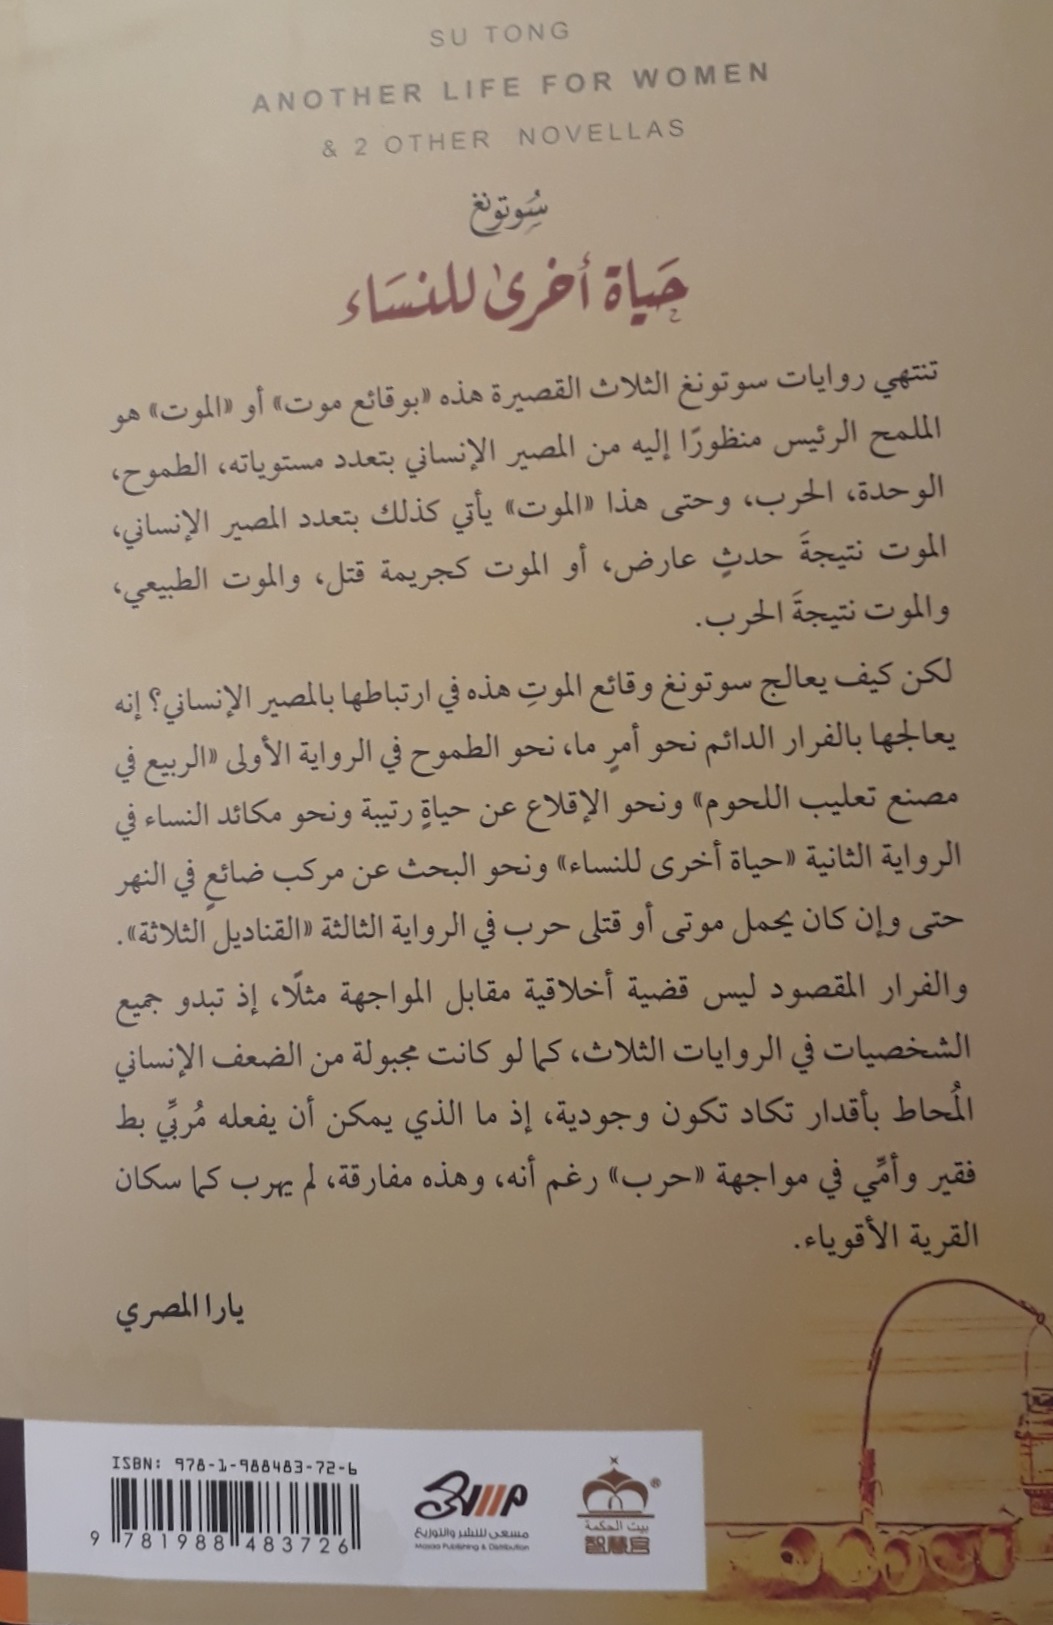 SU TONG
ANOTHER LIFE FOR WOMEN
& 2 OTHER NOVELLAS
سُوتونغ
حَياة أخرىٰ للنسَاء
تنتهي روايات سوتونغ الثلاث القصيرة هذه «بوقائع موت» أو «الموت» هو
الملمح الرئيس منظورًا إليه من المصير الإنساني بتعدد مستوياته، الطموح،
الوحدة، الحرب، وحتى هذا «الموت» يأتي كذلك بتعدد المصير الإنساني،
الموت نتيجةَ حدثٍ عارض، أو الموت كجريمة قتل، والموت الطبيعي،
والموت نتيجةَ الحرب.
لكن كيف يعالج سوتونغ وقائع الموتِ هذه في ارتباطها بالمصير الإنساني؟ إنه
يعالجها بالفرار الدائم نحو أمرٍ ما، نحو الطموح في الرواية الأولى «الربيع في
مصنع تعليب اللحوم» ونحو الإقلاع عن حياةٍ رتيبة ونحو مكائد النساء في
الرواية الثانية «حياة أخرى للنساء» ونحو البحث عن مركب ضائعٍ في النهر
حتى وإن كان يحمل موتى أو قتلى حرب في الرواية الثالثة «القناديل الثلاثة».
والفرار المقصود ليس قضية أخلاقية مقابل المواجهة مثلًا، إذ تبدو جميع
الشخصيات في الروايات الثلاث، كما لو كانت مجبولة من الضعف الإنساني
المُحاط بأقدار تكاد تكون وجودية، إذ ما الذي يمكن أن يفعله مُربِّي بط
فقير وأمِّي في مواجهة «حرب» رغم أنه، وهذه مفارقة، لم يهرب كما سكان
القرية الأقوياء.
يارا المصري
ISBN: 978-1-988483-72-6
9 781988 483726
مسعى
مسعى للنشر والتوزيع
Masaa Publishing & Distribution
®
بيت الحكمة
智慧宫